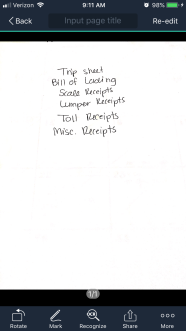 Verizon
9:11 AM
98%
Back
Input page title
Re-edit
Trip sheet
Bill of Lading
Scale Receipts
Lumper Receipts
Toll Receipts
Misc. Receipts
1/1
Rotate
Mark
Recognize
Share
More